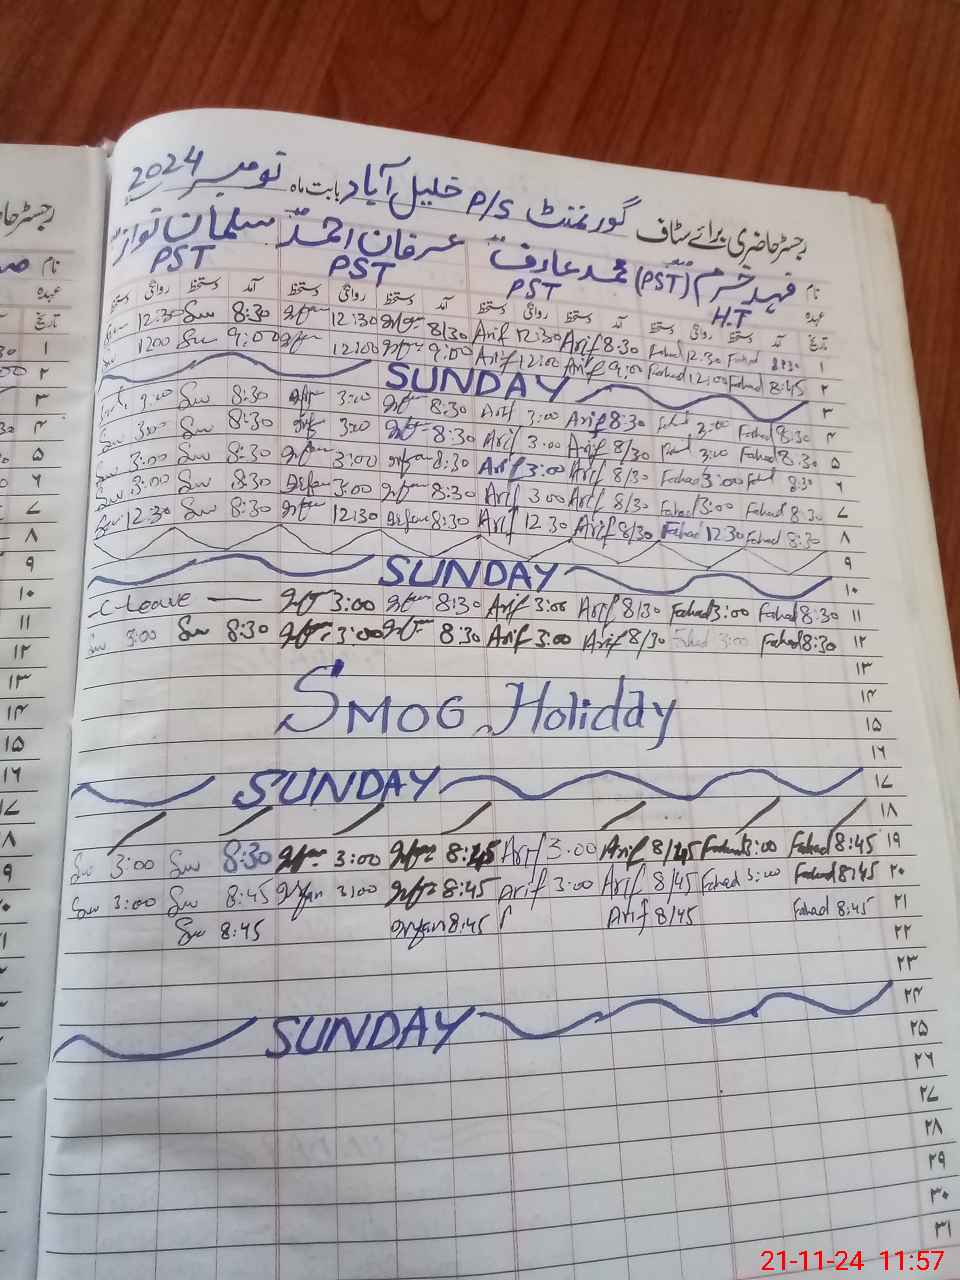 رجسٹر حاضری برائے سٹاف گورنمنٹ P/S خلیل آباد بابت ماہ نومبر 2024
نام فہد خرم (PST) محمد عارف عرفان احمد سلمان نواز
عہدہ H.T PST PST PST
تاریخ آمد دستخط روانگی دستخط آمد دستخط روانگی دستخط آمد دستخط روانگی دستخط آمد دستخط روانگی دستخط
۱ 8:30 Fahad 12:30 Fahad 8:30 Arif 12:30 Arif 8/30 12:30 8:30 12:30
۲ 8:45 Fahad 12:00 Fahad 9:00 Arif 12:00 Arif 9:00 12:00 9:00 1200
۳ SUNDAY
۴ 8:30 Fahad 3:00 8:30 Arif 3:00 Arif 8:30 3:00 8:30 3:00
۵ 8:30 Fahad 3:00 8/30 Arif 3:00 Arif 8:30 3:00 8:30 3:00
۶ 8:30 3:00 Fahad 8/30 Arif 3:00 Arif 8:30 3:00 8:30 3:00
۷ 8:30 Fahad 3:00 Fahad 8/30 Arif 3:00 Arif 8:30 3:00 8:30 3:00
۸ 8:30 Fahad 12:30 Fahad 8/30 Arif 12:30 Arif 8:30 12:30 8:30 12:30
۹
۱۰ SUNDAY
۱۱ 8:30 Fahad 3:00 Fahad 8/30 Arif 3:00 Arif 8:30 3:00 C-Leave
۱۲ 8:30 Fahad 3:00 Fahad 8/30 Arif 3:00 Arif 8:30 3:00 8:30 3:00
۱۳
۱۴
SMOG Holiday
۱۵
۱۶
۱۷ SUNDAY
۱۸
۱۹ 8:45 Fahad 3:00 Fahad 8/45 Arif 3:00 Arif 8:45 3:00 8:30 3:00
۲۰ 8:45 Fahad 3:00 Fahad 8/45 Arif 3:00 Arif 8:45 3:00 Irfan 8:45 3:00
۲۱ 8:45 Fahad 8/45 Arif 8:45 Irfan 8:45
۲۲
۲۳
۲۴ SUNDAY
۲۵
۲۶
۲۷
۲۸
۲۹
۳۰
۳۱
21-11-24 11:57